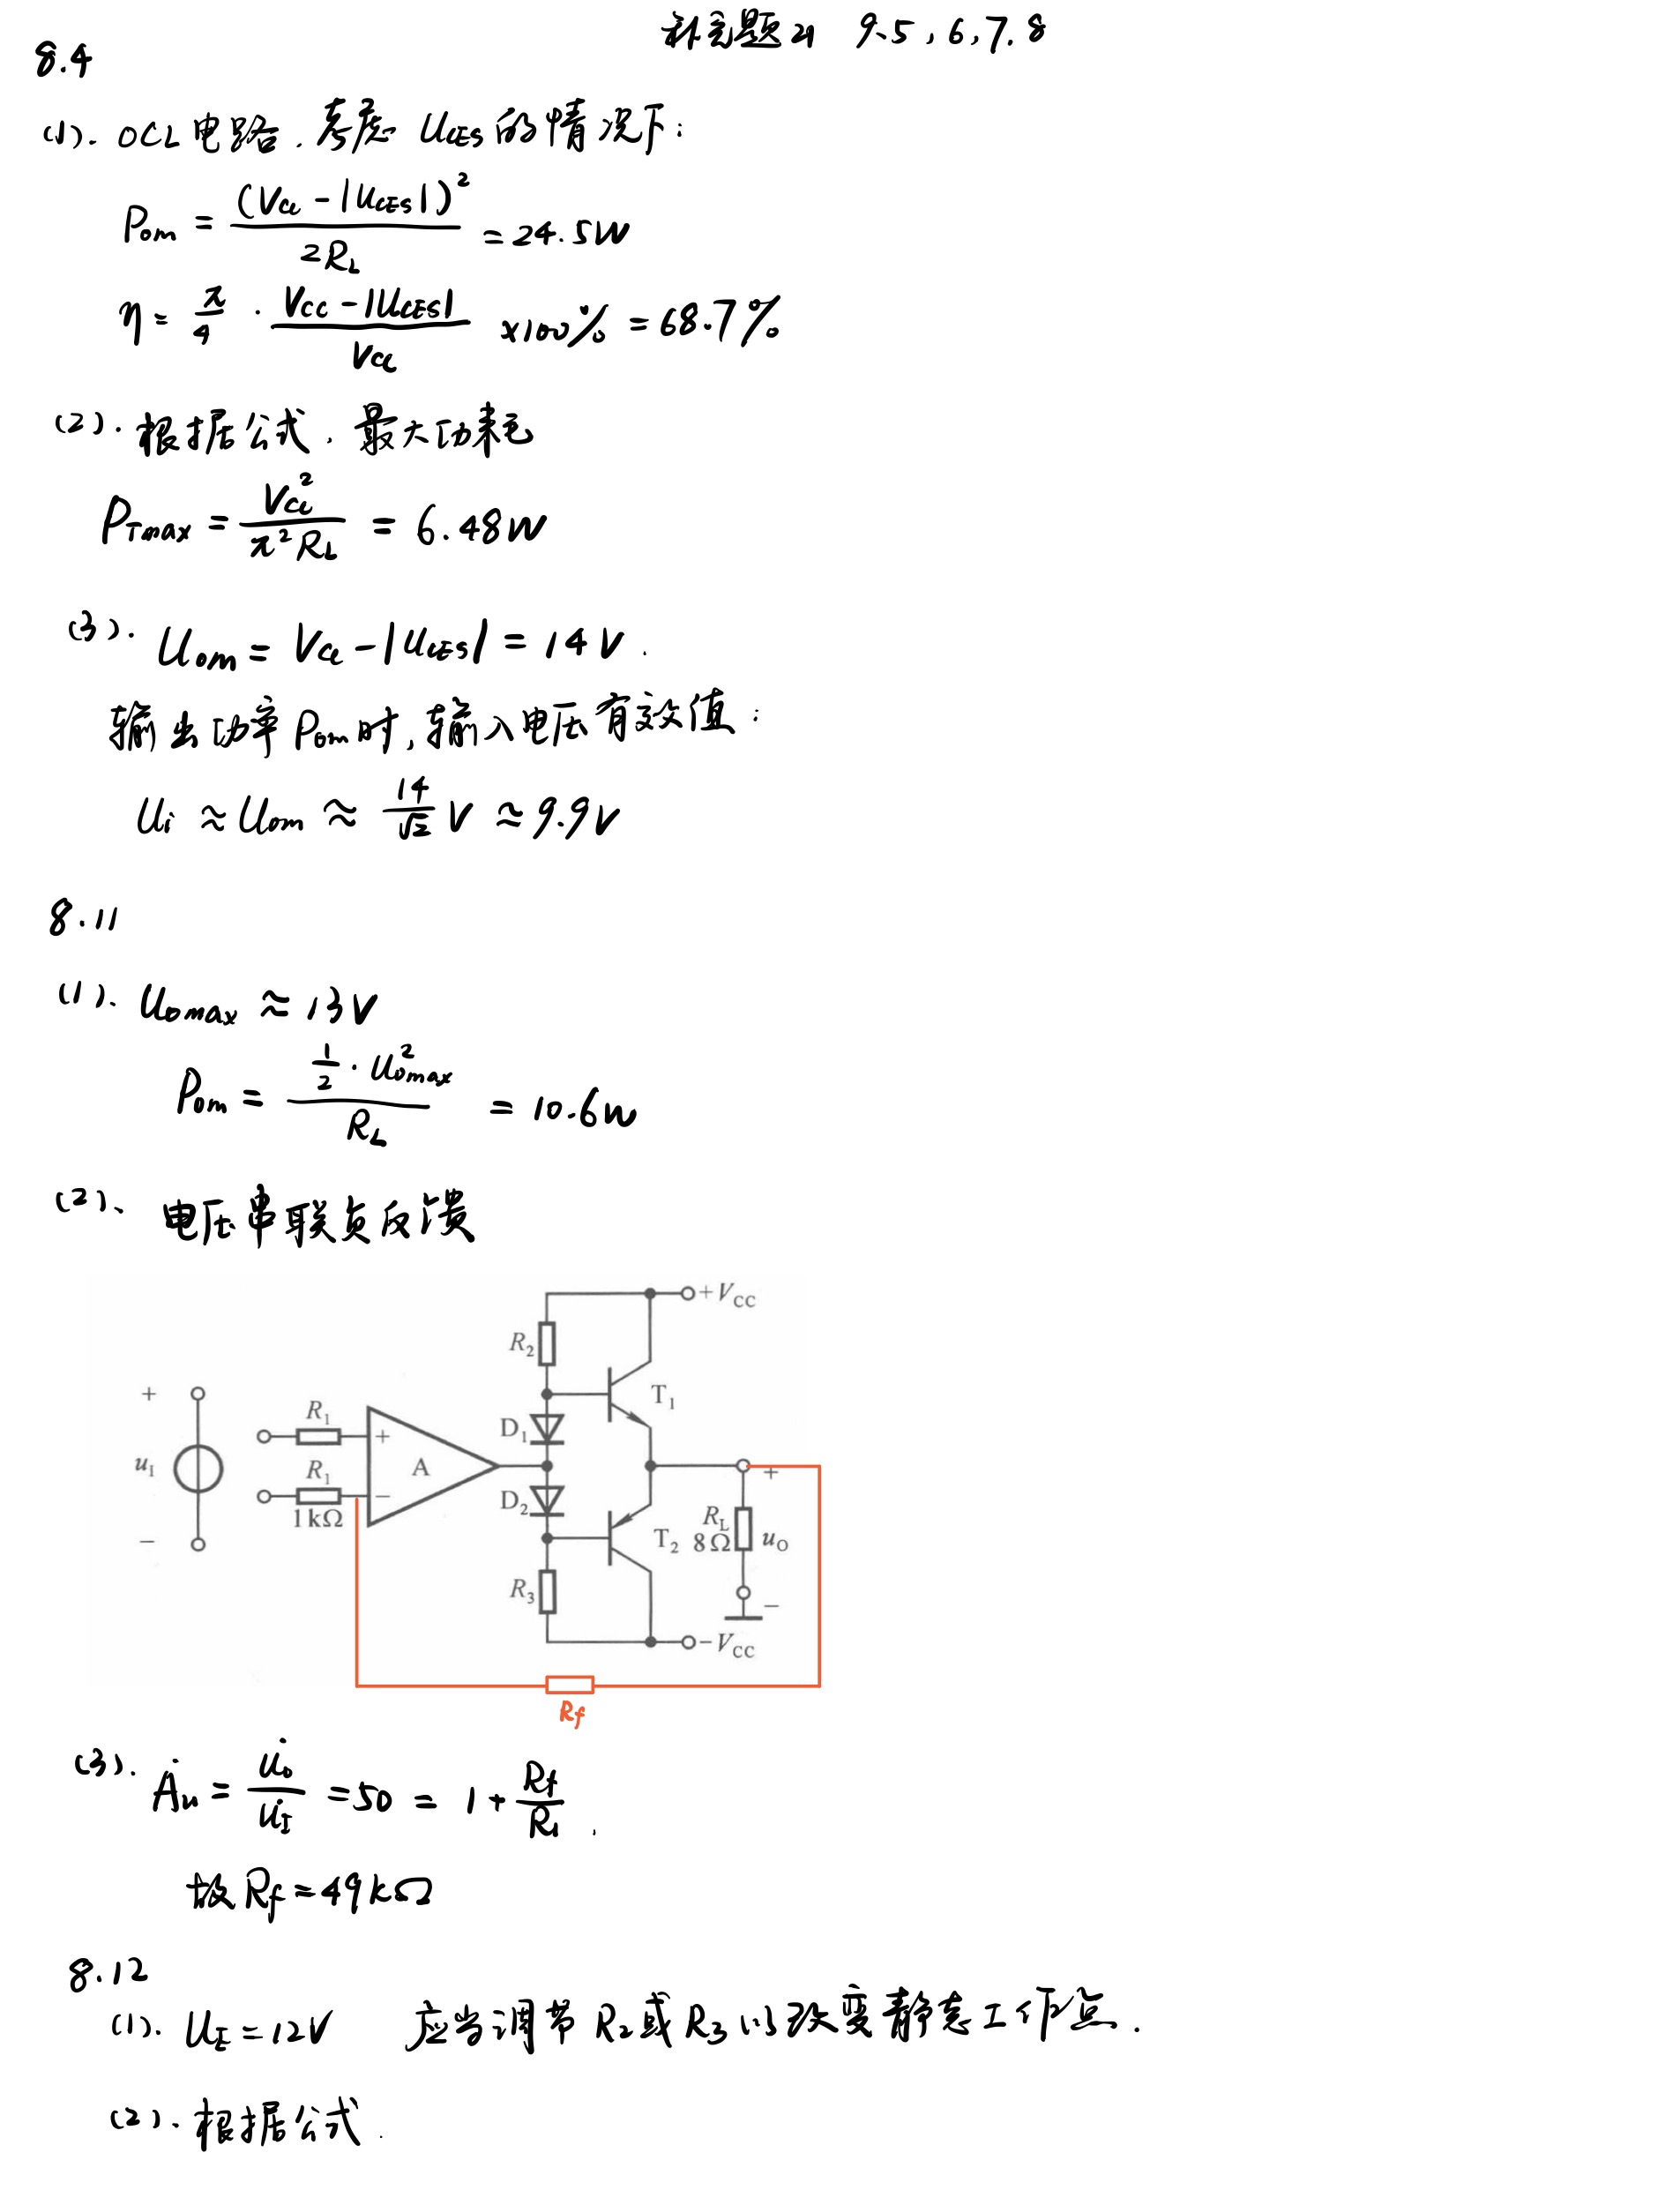 补充题21 9.5,6,7.8
8.4
(1). OCL电路.考虑 UCES的情况下:
Pom = (Vcc - |UCES|)² / 2RL = 24.5W
η = π/4 · (Vcc - |UCES|) / Vcc ×100% = 68.7%
(2). 根据公式, 最大功耗
PTmax = Vcc² / π²RL = 6.48W
(3). Uom = Vcc - |UCES| = 14V.
输出功率Pom时,输入电压有效值:
Ui ≈ Uom ≈ 14/√2 V ≈ 9.9V
8.11
(1). Uomax ≈ 13V
Pom = ½ · U²omax / RL = 10.6W
(2)、 电压串联负反馈
+VCC
R2
T1
D1
+
uI
−
R1
R1
1kΩ
+
−
A
D2
T2
RL
8Ω
+
uO
−
R3
−VCC
Rf
(3).Ȧu = u̇o / u̇I = 50 = 1 + Rf / R1.
故Rf = 49kΩ
8.12
(1). UE = 12V 应当调节 R2或R3以改变静态工作点.
(2). 根据公式.